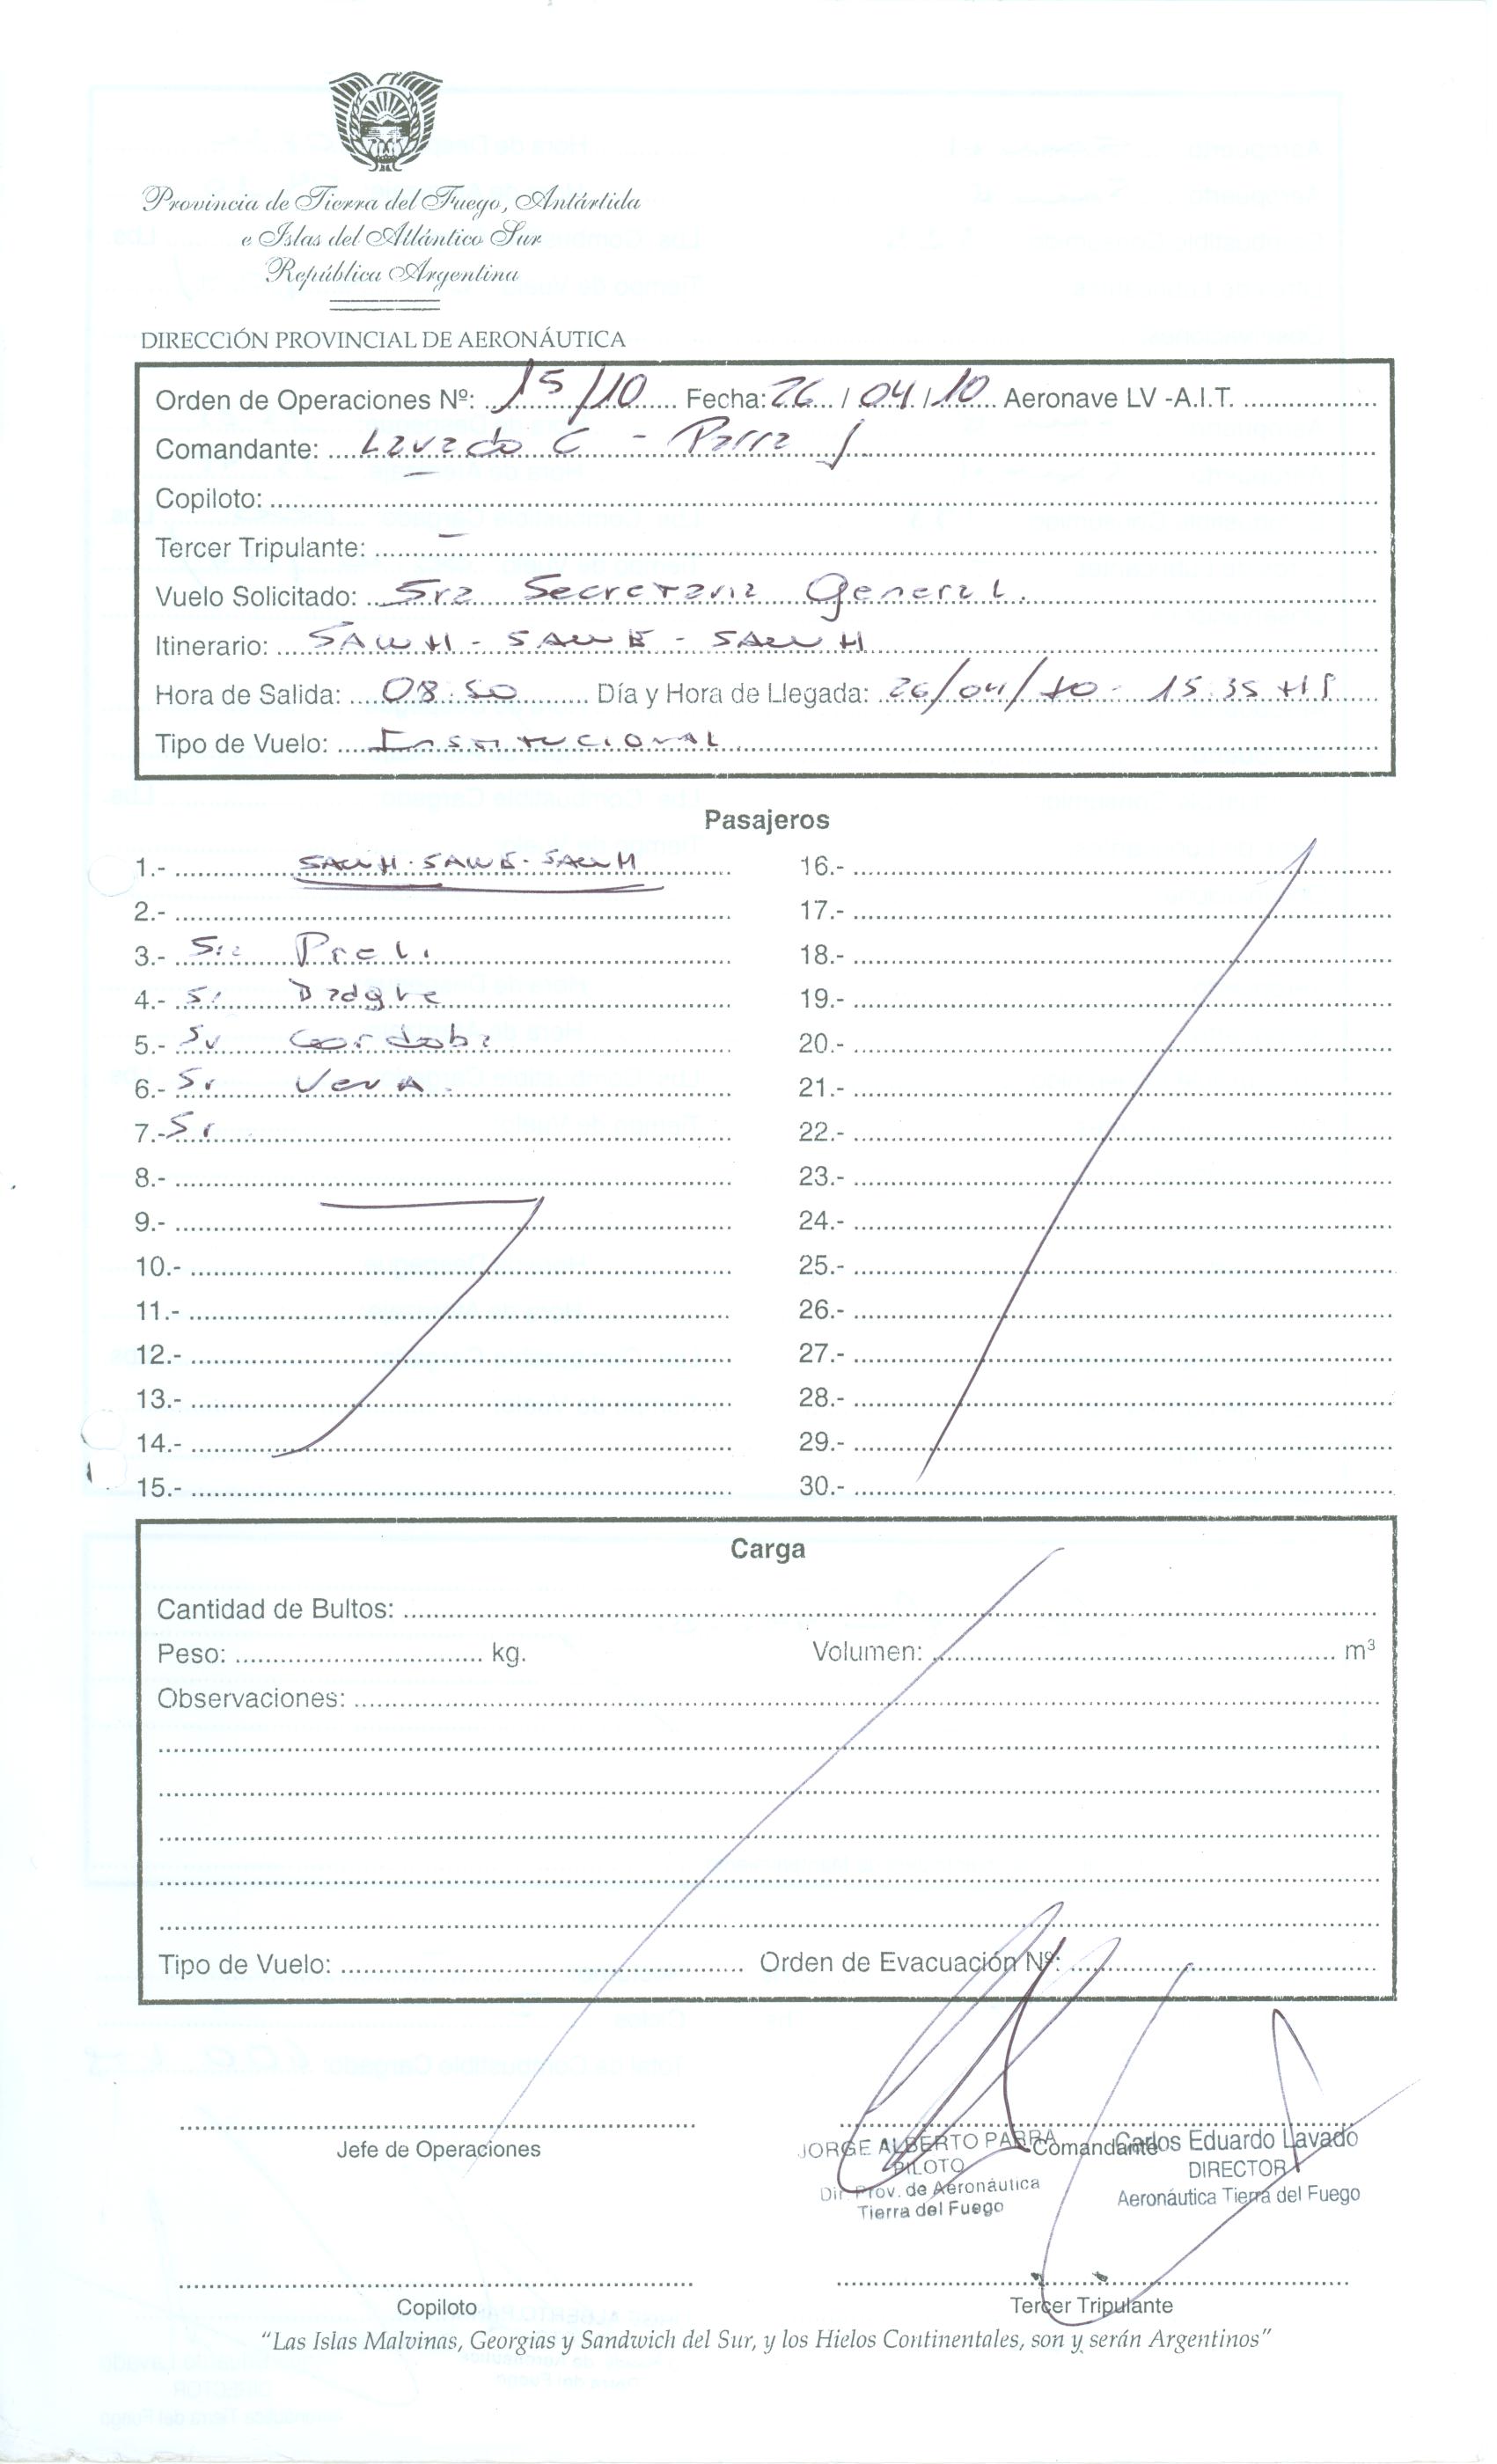 Provincia de Tierra del Fuego, Antártida
e Islas del Atlántico Sur
República Argentina
DIRECCIÓN PROVINCIAL DE AERONÁUTICA
Orden de Operaciones Nº: 15/10 Fecha: 26 / 04 / 10 Aeronave LV -A.I.T.
Comandante: Lavado C - Parra J
Copiloto:
Tercer Tripulante: -
Vuelo Solicitado: Sra Secretaria General.
Itinerario: SAWH - SAWE - SAWH
Hora de Salida: 08:50 Día y Hora de Llegada: 26/04/10 - 15:35 HS
Tipo de Vuelo: Institucional
Pasajeros
1.- SAWH - SAWE - SAWH
2.-
3.- Sra Preli
4.- Sr
5.- Sr Cordoba
6.- Sr Vera
7.- Sr
8.-
9.-
10.-
11.-
12.-
13.-
14.-
15.-
16.-
17.-
18.-
19.-
20.-
21.-
22.-
23.-
24.-
25.-
26.-
27.-
28.-
29.-
30.-
Carga
Cantidad de Bultos:
Peso: kg. Volumen: m³
Observaciones:
Tipo de Vuelo: Orden de Evacuación Nº:
Jefe de Operaciones
Comandante
JORGE ALBERTO PARRA
PILOTO
Dir. Prov. de Aeronáutica
Tierra del Fuego
Carlos Eduardo Lavado
DIRECTOR
Aeronáutica Tierra del Fuego
Copiloto
Tercer Tripulante
"Las Islas Malvinas, Georgias y Sandwich del Sur, y los Hielos Continentales, son y serán Argentinos"